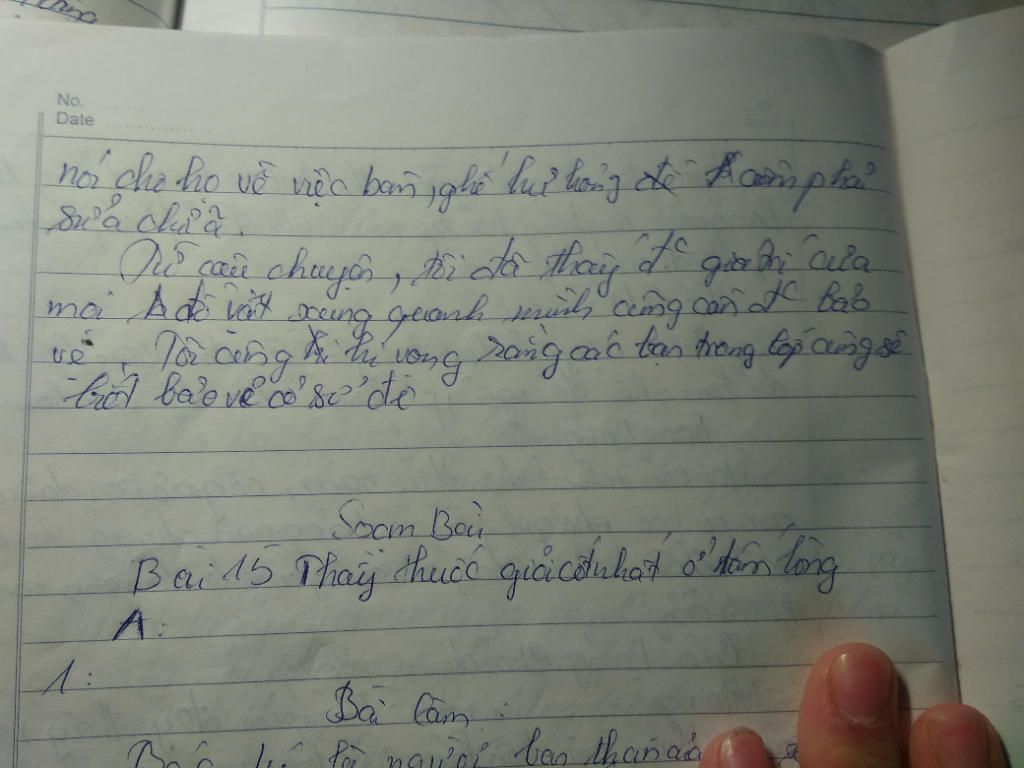 No. ......
Date ................
nói cho họ về việc bàn, ghế hư hỏng để cần phải
sửa chữa.
Từ câu chuyện, tôi đã thấy đc giá trị của
mọi đồ vật xung quanh mình cũng cần đc bảo
vệ. Tôi cũng hi vọng rằng các bạn trong lớp cũng sẽ
biết bảo vệ cơ sở đó
Soạn Bài
Bài 15 Thầy thuốc giỏi cốt nhất ở tấm lòng
A:
1:
Bài làm:
là người bạn thân